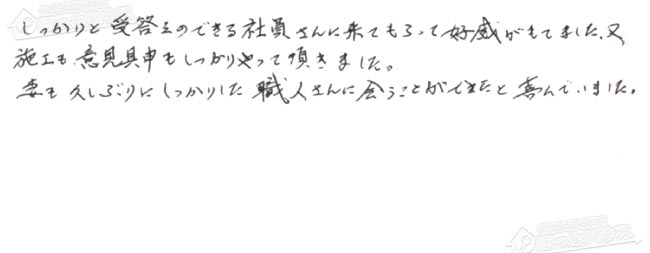 しっかりと受答えのできる社員さんに来てもらって好感がもてました、又
施工も意見具申もしっかりやって頂きました。
妻も久しぶりにしっかりした職人さんに会うことができたと喜んでいました。